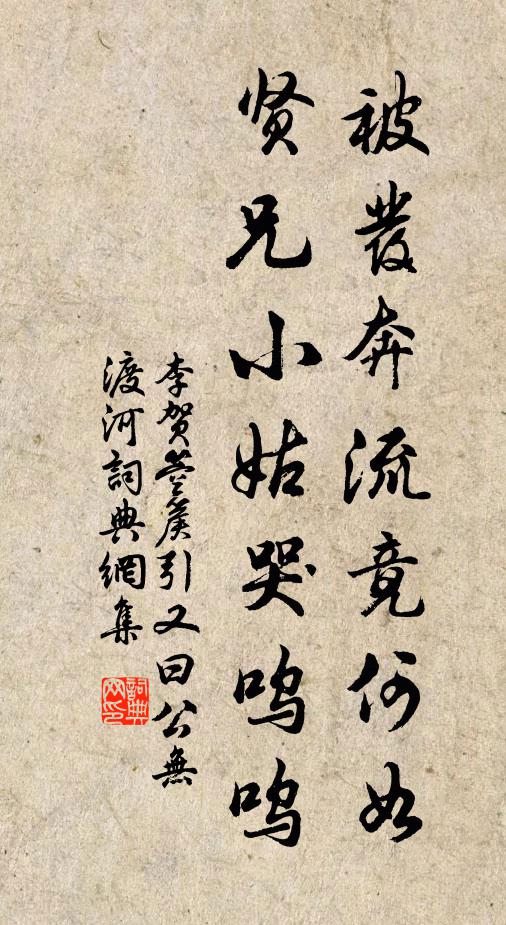 被發奔流竟何如
贤兄小姑哭鸣鸣
李贺箜篌引又曰公無
渡河詞典網集
詞典
网印